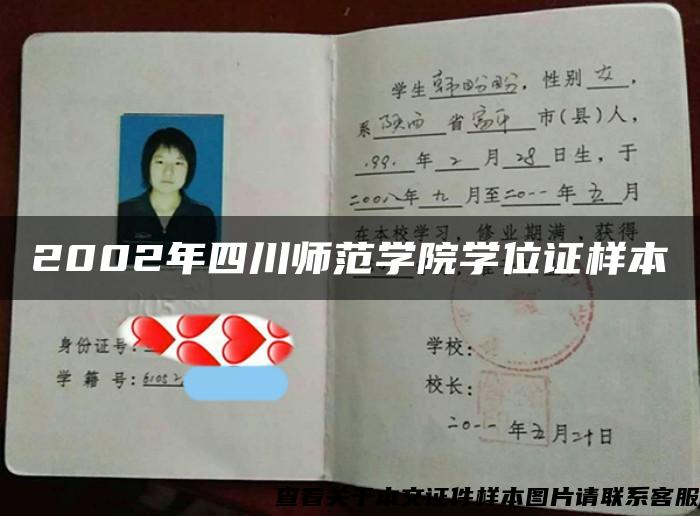 学生韩盼盼，性别女，
系陕西省富平市(县)人，
.99.年2月28日生，于
二00八年九月至二0一一年五月
在本校学习，修业期满，获得
2002年四川师范学院学位证样本
身份证号：
学籍号：61052
学校：
校长：
二0一一年五月二十日
查看关于本文证件样本图片请联系客服